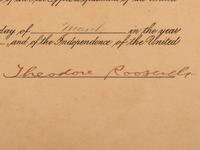 day of March in the year
and of the Independence of the United
Theodore Roosevelt